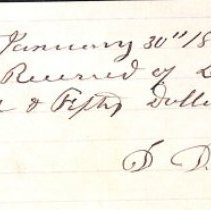 January 30" 18
Received of
& Fifty Dolla
D D.